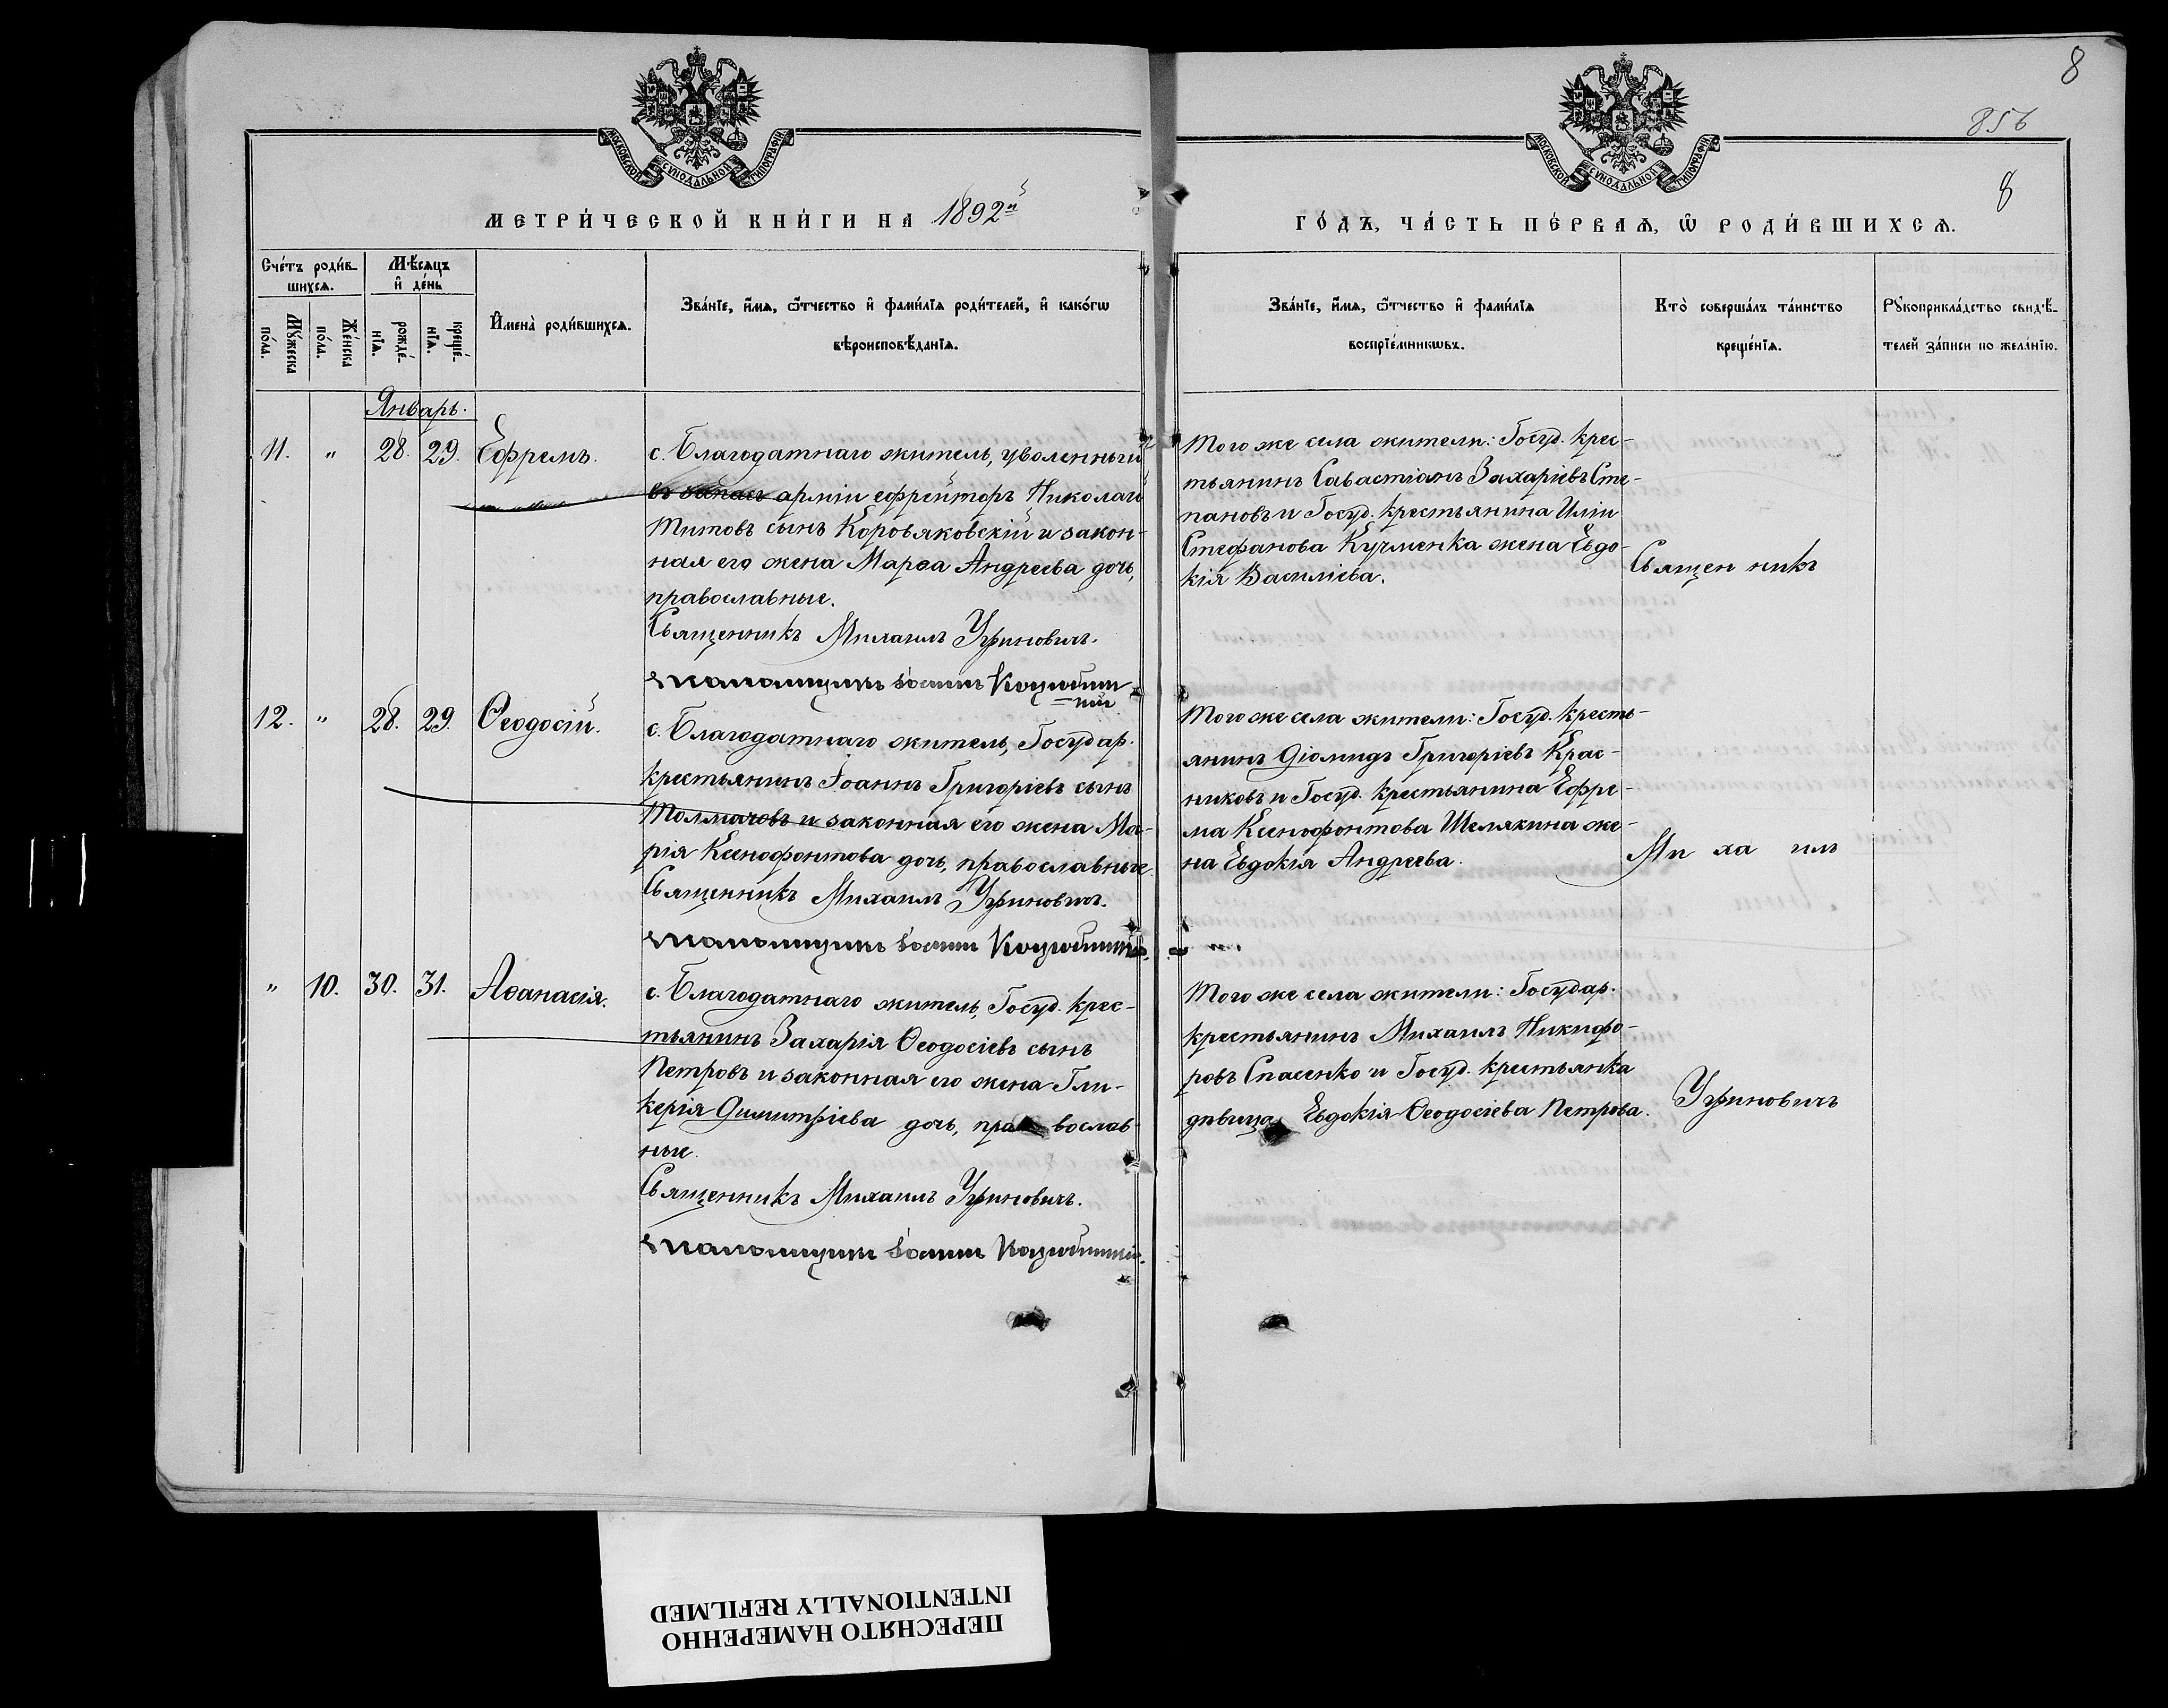 8
856
8
МОСКОВСКОЙ СѴНОДАЛЬНОЙ ТИПОГРАФІИ
МОСКОВСКОЙ СѴНОДАЛЬНОЙ ТИПОГРАФІИ
МЕТРИ́ЧЕСКОЙ КНИ́ГИ НА 1892й
ГО́ДЪ, ЧА́СТЬ ПЕ́РВАѦ, Ѡ҆ РОДИ́ВШИХСѦ.
Сче́тъ роди́в-
шихсѧ.
Мꙋ́жеска
по́ла.
Же́нска
по́ла.
Мѣ́сѧцъ
и҆ де́нь
рожде́-
нїѧ.
креще́-
нїѧ.
И҆мена̀ роди́вшихсѧ.
Зва́нїе, и҆́мѧ, ѻ҆́тчество и҆ фами́лїѧ роди́телей, и҆ како́гѡ
вѣроисповѣ́данїѧ.
Зва́нїе, и҆́мѧ, ѻ҆́тчество и҆ фами́лїѧ
воспрїе́мникѡвъ.
Кто̀ соверша́лъ та́инство
креще́нїѧ.
Рꙋкоприкла́дство свидѣ́-
телей за́писи по жела́нїю.
Январь.
11. " 28. 29. Ефремъ.
с. Благодатнаго житель, уволенный
въ запас арміи ефрейторъ Николай
Титовъ сынъ Коровяковскій и закон-
ная его жена Марѳа Андреева дочь,
православные.
Священникъ Михаилъ Угриновичъ.
Псаломщикъ
Того же села жители: Госуд. крес-
тьянинъ Савастіанъ Захаріевъ Сте-
пановъ и Госуд. крестьянина Иліи
Стефанова Кучменка жена Евдо-
кія Василіева.
Священникъ
12. " 28. 29. Ѳеодосій.
с. Благодатнаго житель, Государ.
крестьянинъ Іоаннъ Григоріевъ сынъ
Толмачовъ и законная его жена Ма-
рія Ксенофонтова дочь, православные.
Священникъ Михаилъ Угриновичъ.
Псаломщикъ
Того же села жители: Госуд. кресть-
янинъ Діомидъ Григоріевъ Крас-
никовъ и Госуд. крестьянина Ефре-
ма Ксенофонтова Шелякина же-
на Евдокія Андреева.
Михаилъ
" 10. 30. 31. Аѳанасія.
с. Благодатнаго житель, Госуд. крес-
тьянинъ Захарія Ѳеодосіевъ сынъ
Петровъ и законная его жена Гли-
керія Димитріева дочь, православ-
ные.
Священникъ Михаилъ Угриновичъ.
Псаломщикъ
Того же села жители: Государ.
крестьянинъ Михаилъ Никифо-
ровъ Спасенко и Госуд. крестьянка
дѣвица Евдокія Ѳеодосіева Петрова.
Угриновичъ
ПЕРЕСНЯТО НАМЕРЕННО
INTENTIONALLY REFILMED